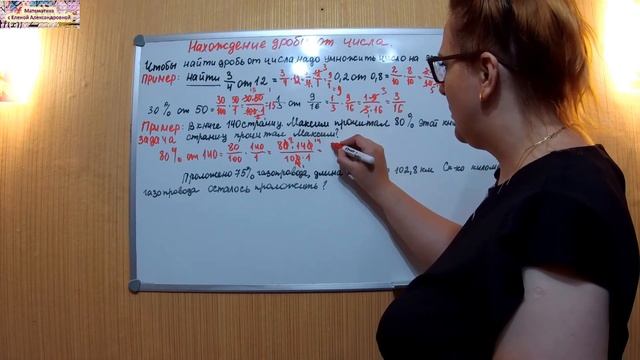 Математика
с Еленой Александровной
Нахождение дроби от числа.
Чтобы найти дробь от числа надо умножить число на
Пример: найти 3/4 от 12 = 0,2 от 0,8 = 2/10 · 8/10 =
30% от 50 = 30/100 · 50/1 = 30·50/100·1 = 15 от 9/16 = 1/3 · 9/16 = 1·9/3·16 = 3/16
Пример: В книге 140 страниц. Максим прочитал 80% этой
задача страниц прочитал Максим?
80% от 140 = 80/100 · 140/1 = 80·140/100·1 =
Проложено 75% газопровода, длина 102,8 км
газопровода осталось проложить?